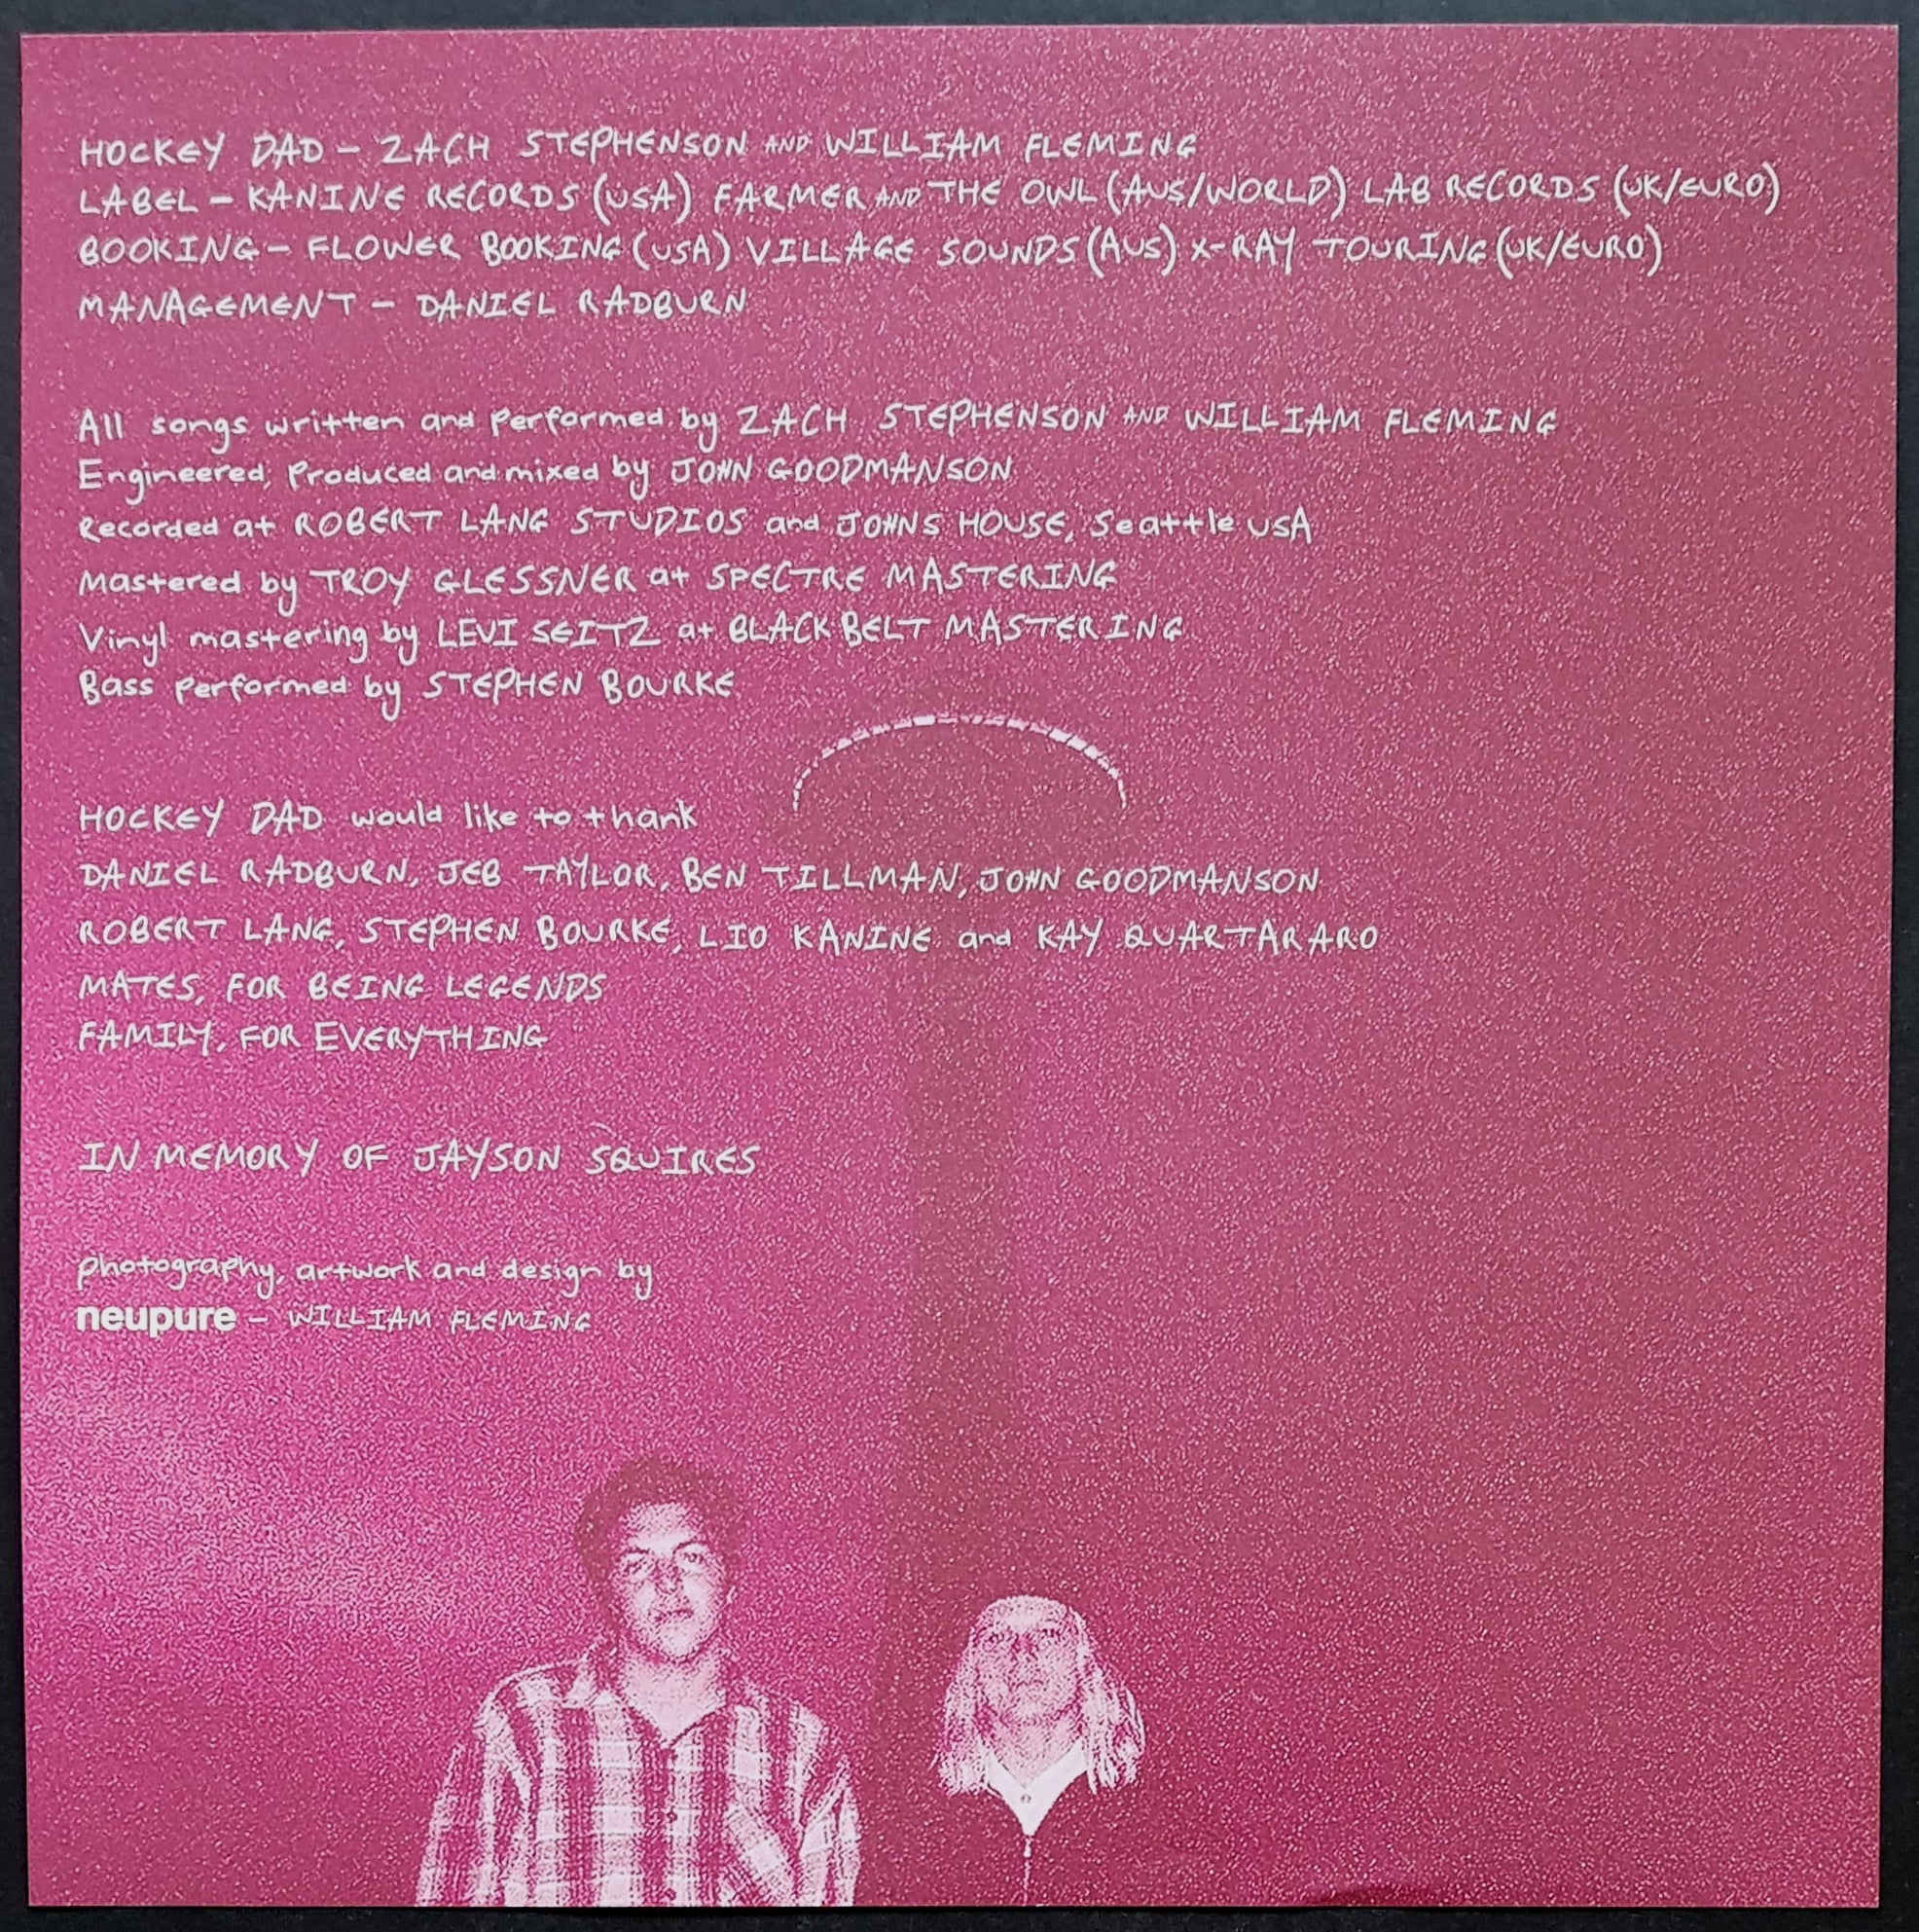 HOCKEY DAD - ZACH STEPHENSON AND WILLIAM FLEMING
LABEL - KANINE RECORDS (USA) FARMER AND THE OWL (AUS/WORLD) LAB RECORDS (UK/EURO)
BOOKING - FLOWER BOOKING (USA) VILLAGE SOUNDS (AUS) X-RAY TOURING (UK/EURO)
MANAGEMENT - DANIEL RADBURN
All songs written and performed by ZACH STEPHENSON AND WILLIAM FLEMING
Engineered, Produced and mixed by JOHN GOODMANSON
Recorded at ROBERT LANG STUDIOS and JOHNS HOUSE, Seattle USA
Mastered by TROY GLESSNER at SPECTRE MASTERING
Vinyl mastering by LEVI SEITZ at BLACK BELT MASTERING
Bass performed by STEPHEN BOURKE
HOCKEY DAD would like to thank
DANIEL RADBURN, JEB TAYLOR, BEN TILLMAN, JOHN GOODMANSON
ROBERT LANG, STEPHEN BOURKE, LIO KANINE and KAY QUARTARARO
MATES, FOR BEING LEGENDS
FAMILY, FOR EVERYTHING
IN MEMORY OF JAYSON SQUIRES
photography, artwork and design by
neupure - WILLIAM FLEMING